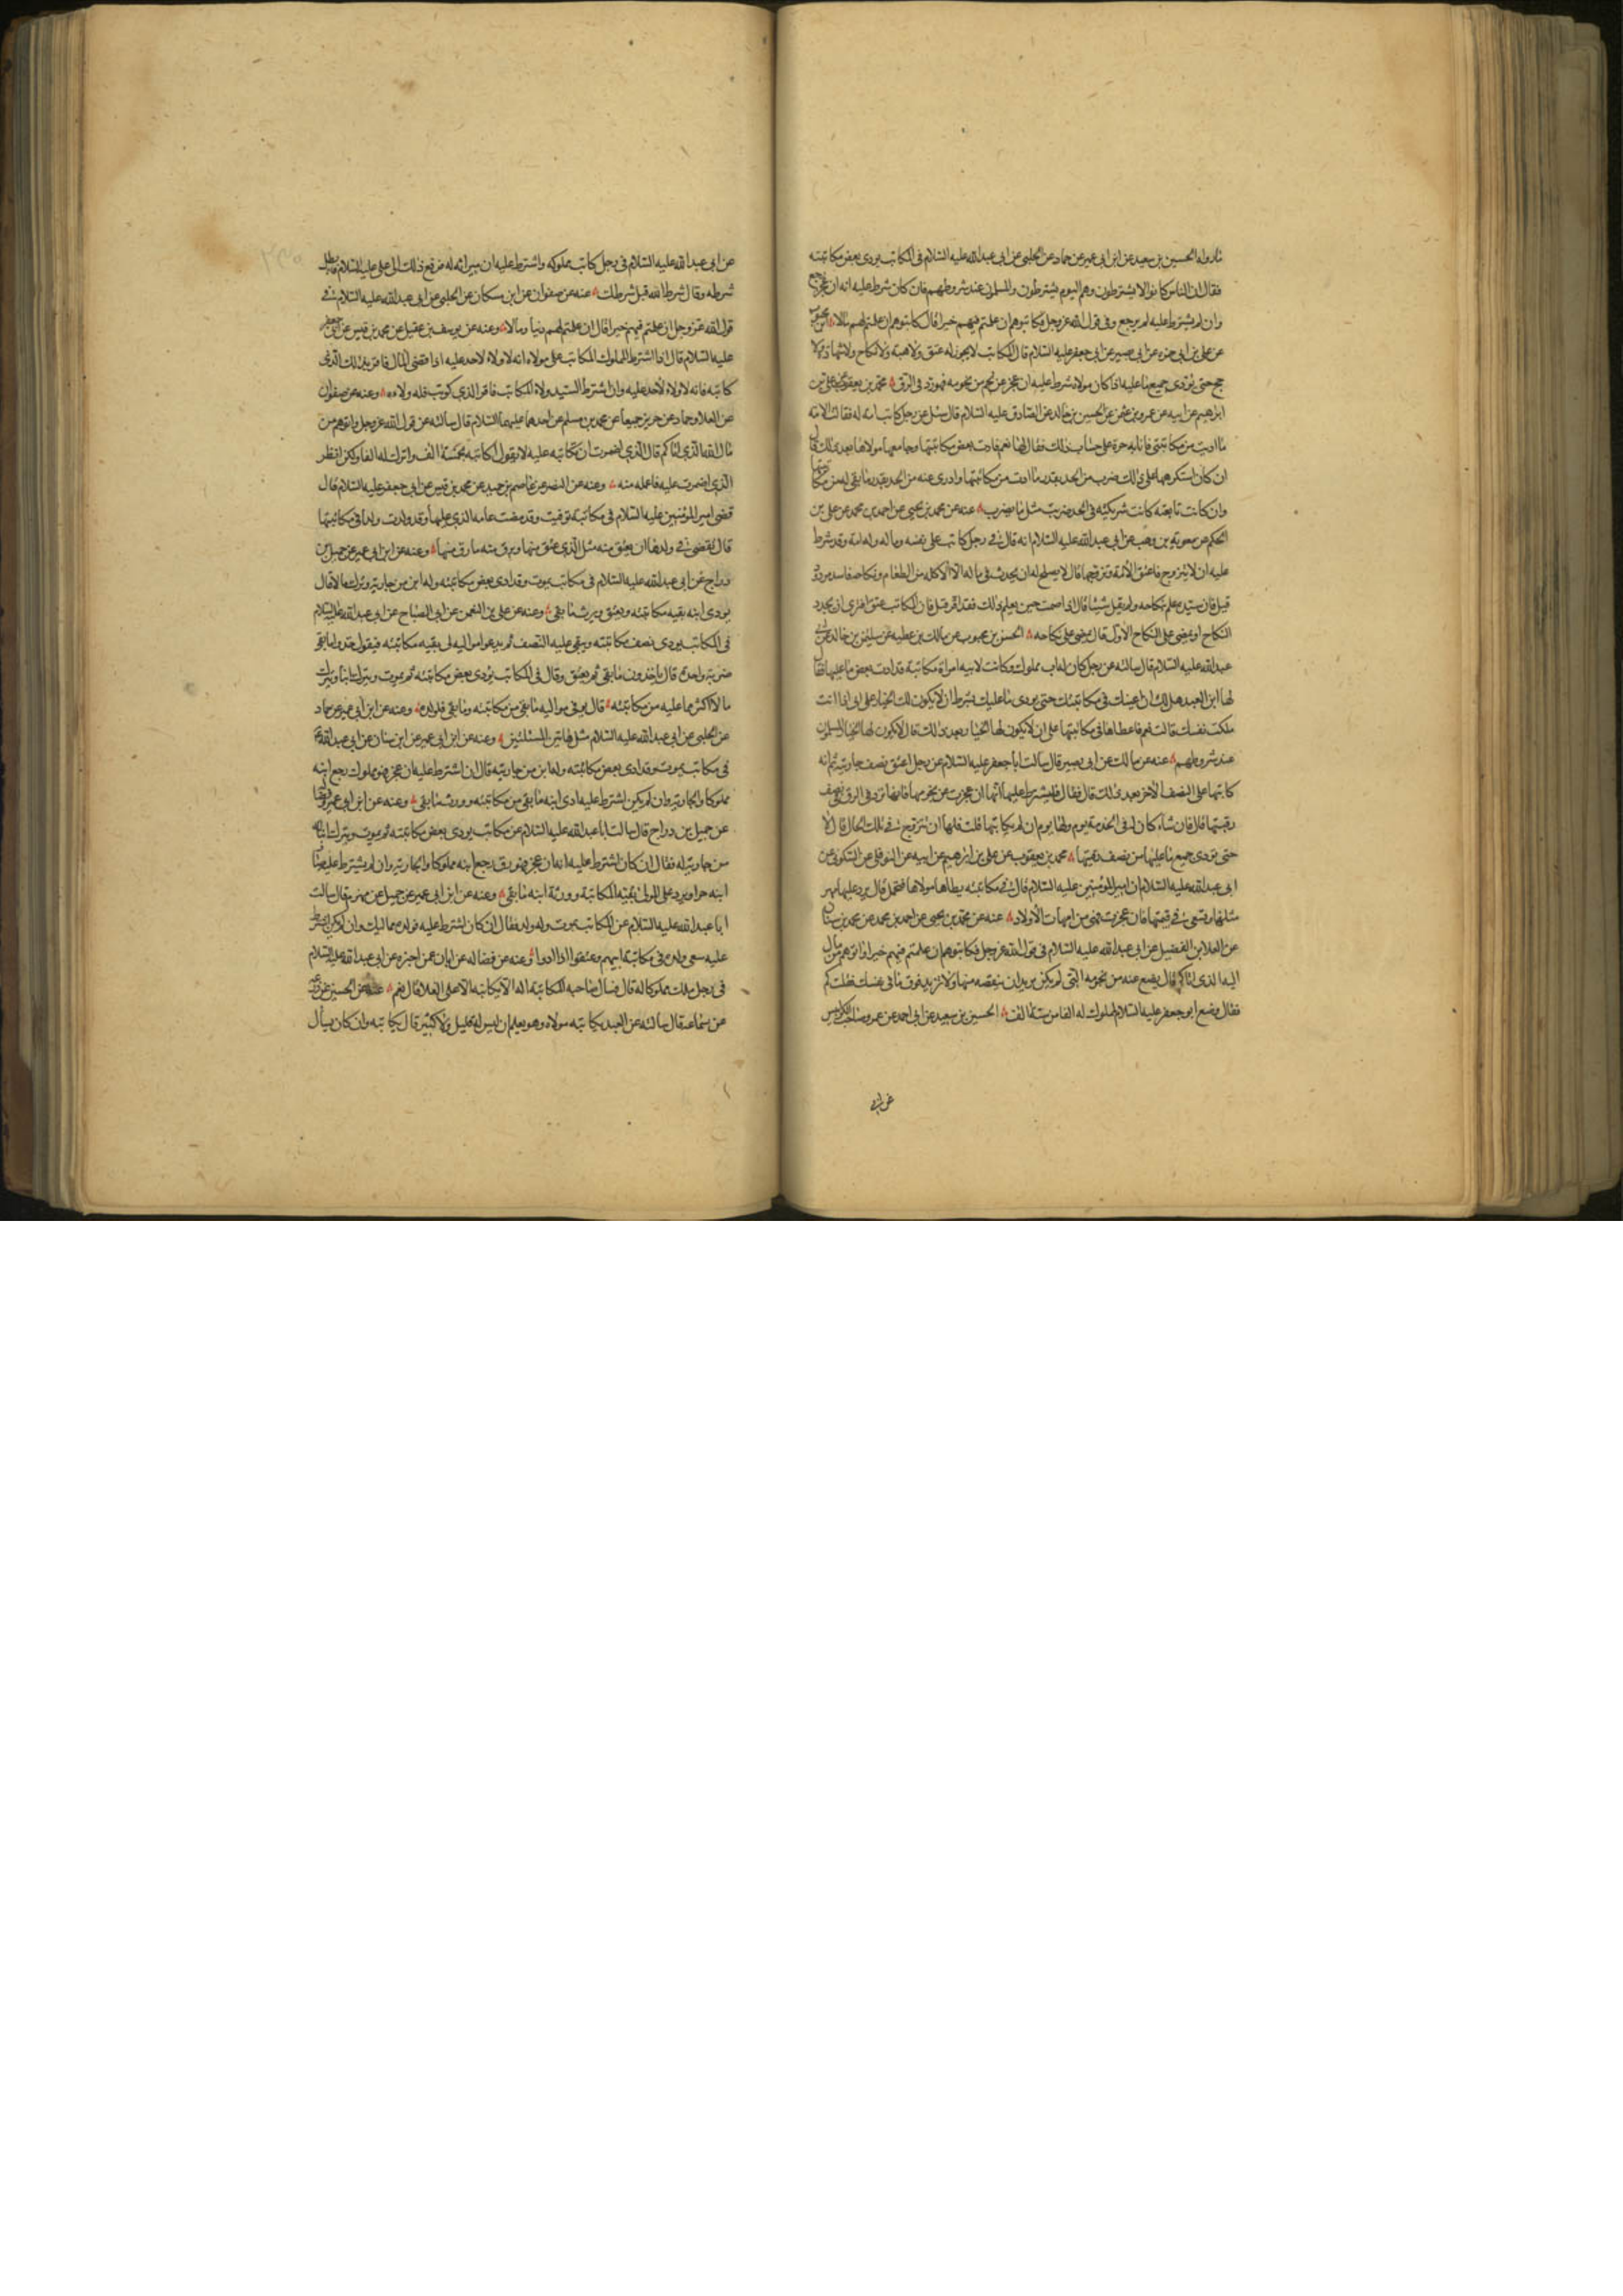 ما رواه الحسين بن سعيد عن ابن ابى عمير عن حماد عن الحلبى عن ابى عبد الله عليه السلام فى المكاتب يودى بعض مكاتبته
فقال ان الناس كانوا لا يشترطون وهم اليوم يشترطون والمسلمون عند شروطهم فان كان شرط عليه انه ان عجز رجع
وان لم يشترط عليه لم يرجع وفى قول الله عز وجل فكاتبوهم ان علمتم فيهم خيرا قال كاتبوهم ان علمتم لهم مالا
عن على بن ابى حمزه عن ابى بصير عن ابى جعفر عليه السلام قال المكاتب لا يجوز له عتق ولا هبة ولا نكاح ولا شهادة ولا
حج حتى يؤدى جميع ما عليه اذا كان مولاه شرط عليه ان عجز عن نجم من نجومه فهو رد فى الرق محمد بن يعقوب عن على بن
ابرهيم عن ابيه عن عمرو بن عثمن عن الحسين بن خالد عن الصادق عليه السلام قال سئل عن رجل كاتب امة له فقالت الامة
ما اديت من مكاتبتى فانا به حرة على حساب ذلك فقال لها نعم فادت بعض مكاتبتها وجامعها مولاها بعد ذلك قال
ان كان استكرهها على ذلك ضرب من الحد بقدر ما ادت من مكاتبتها وادرئ عنه من الحد بقدر ما بقى له من مكاتبتها
وان كانت تابعته كانت شريكته فى الحد ضربت مثل ما يضرب عنه عن محمد بن يحيى عن احمد بن محمد عن على بن
الحكم عن معوية بن وهب عن ابى عبد الله عليه السلام انه قال فى رجل كاتب على نفسه وماله وله امة وقد شرط
عليه ان لا يتزوج فاعتق الأمة وتزوجها قال لا يصلح له ان يحدث فى ماله الا الاكلة من الطعام ونكاحه فاسد مردود
قيل فان سيده علم بنكاحه ولم يقل شيئا قال اذا صمت حين يعلم ذلك فقد اقر قيل فان المكاتب عتق افترى ان يجدد
النكاح او يمضى على النكاح الاول قال يمضى على نكاحه الحسن بن محبوب عن مالك بن عطيه عن سليمن بن خالد عن ابى
عبد الله عليه السلام قال سالته عن رجل كان له اب مملوك وكانت لابيه امراة مكاتبة قد ادت بعض ما عليها فقال
لها ابن العبد هل لك ان اعينك فى مكاتبتك حتى يودى ما عليك بشرط ان لا يكون لك الخيار على ابى اذا انت
ملكت نفسك قالت نعم فاعطاها فى مكاتبتها على ان لا يكون لها الخيار بعد ذلك قال لا يكون لها الخيار المسلمون
عند شروطهم عنه عن مالك عن ابى بصير قال سالت ابا جعفر عليه السلام عن رجل اعتق نصف جاريته ثم انه
كاتبها على النصف الأخر بعد ذلك قال فقال فليشترط عليها انها ان عجزت عن نجومها فانها ترد فى الرق فى نصف
رقبتها قال فان شاء كان له فى الخدمة يوم ولها يوم ان لم يكاتبها قلت فلها ان تتزوج فى تلك الحال قال لا
حتى تودى جميع ما عليها من نصف رقبتها محمد بن يعقوب عن على بن ابرهيم عن ابيه عن النوفلى عن السكونى عن
ابى عبد الله عليه السلام ان امير المؤمنين عليه السلام قال فى مكاتبته يطاها مولاها فتحمل قال يرد عليها مهر
مثلها وتسعى فى قيمتها فان عجزت فهى من امهات الأولاد عنه عن محمد بن يحيى عن احمد بن محمد عن محمد بن سنان
عن العلا بن الفضيل عن ابى عبد الله عليه السلام فى قول الله عز وجل فكاتبوهم ان علمتم فيهم خيرا واتوهم من مال
الله الذى اتاكم قال يضع عنه من نجومه التى لم يكن يريد ان ينقصه منها ولا تزيد فوق ما فى نفسك فقلت كم
فقال وضع ابو جعفر عليه السلام لمملوك له الفا من ستة الف الحسين بن سعيد عن ابى احمد عن عمرو صاحب الكرابيس
عن ابى
عن ابى عبد الله عليه السلام فى رجل كاتب مملوكه واشترط عليه ان ميراثه له فرفع ذلك الى على عليه السلام فابطل
شرطه وقال شرط الله قبل شرطك عنه عن صفوان عن ابن مسكان عن الحلبى عن ابى عبد الله عليه السلام فى
قول الله عز وجل ان علمتم فيهم خيرا قال ان علمتم لهم دينا ومالا وعنه عن يوسف بن عقيل عن محمد بن قيس عن ابى جعفر
عليه السلام قال اذا اشترط المملوك المكاتب على مولاه انه لا ولاء لاحد عليه اذا قضى المال فاقر بذلك الذى
كاتبه فانه لا ولاء لأحد عليه وان اشترط السيد ولاء المكاتب فاقر الذى كوتب فله ولاءه وعنه عن صفوان
عن العلا وحماد عن حريز جميعا عن محمد بن مسلم عن احدهما عليهما السلام قال سالته عن قول الله عز وجل واتوهم من
مال الله الذى اتاكم قال الذى اضمرت ان تكاتبه عليه لا يقول اكاتبه بخمسة الف واترك له الفا ولكن انظر
الذى اضمرت عليه فاعطه منه وعنه عن النضر عن عاصم بن حميد عن محمد بن قيس عن ابى جعفر عليه السلام قال
قضى امير المؤمنين عليه السلام فى مكاتبة توفيت وقد قضت عامة الذى عليها وقد ولدت ولدا فى مكاتبتها
قال يقضى فى ولدها ان يعتق منه مثل الذى عتق منها ويرق منه ما رق منها وعنه عن ابن ابى عمير عن جميل بن
دراج عن ابى عبد الله عليه السلام فى مكاتب يموت وقد ادى بعض مكاتبته وله ابن من جاريته وترك مالا قال
يودى ابنه بقيه مكاتبته ويعتق ويرث ما بقى وعنه عن على بن النعمن عن ابى الصباح عن ابى عبد الله عليه السلام
فى المكاتب يودى نصف مكاتبته ويبقى عليه النصف ثم يدعو مواليه الى بقيه مكاتبته فيقول خذوا ما بقى
ضربة واحدة قال ياخذون ما بقى ثم يعتق وقال فى المكاتب يؤدى بعض مكاتبته ثم يموت ويترك ابنا ويترك
مالا اكثر مما عليه من مكاتبته قال يوفى مواليه ما بقى من مكاتبته وما بقى فلولده وعنه عن ابن ابى عمير عن حماد
عن الحلبى عن ابى عبد الله عليه السلام مثل هاتين المسئلتين وعنه عن ابن ابى عمير عن ابن سنان عن ابى عبد الله
فى مكاتب يموت وقد ادى بعض مكاتبته وله ابن من جاريته قال ان اشترط عليه ان عجز فهو مملوك رجع ابنه
مملوكا والجارية وان لم يكن اشترط عليه ادى ابنه ما بقى من مكاتبته وورث ما بقى وعنه عن ابن ابى عمير
عن جميل بن دراج قال سالت ابا عبد الله عليه السلام عن مكاتب يودى بعض مكاتبته ثم يموت ويترك ابنا له
من جاريته له فقال ان كان اشترط عليه انه ان عجز فهو رق رجع ابنه مملوكا والجارية وان لم يشترط عليه صار
ابنه حرا ويرد على المولى بقية المكاتبة وورثه ابنه ما بقى وعنه عن ابن ابى عمير عن جميل عن مهزم قال سالت
ابا عبد الله عليه السلام عن المكاتب يموت وله ولد فقال ان كان اشترط عليه فولده مماليك وان لم يكن اشترط
عليه سعى ولده فى مكاتبة ابيهم وعتقوا اذا ادوا وعنه عن فضاله عن ابان عمن اخبره عن ابى عبد الله عليه السلام
فى رجل ملك مملوكا له مال فسال صاحبه المكاتبة اله الا يكاتبه الا على الغلا قال نعم عنه عن الحسين عن زرعة
عن سماعه قال سالته عن العبد يكاتبه مولاه وهو يعلم ان ليس له قليل ولا كثير قال يكاتبه وان كان يسأل